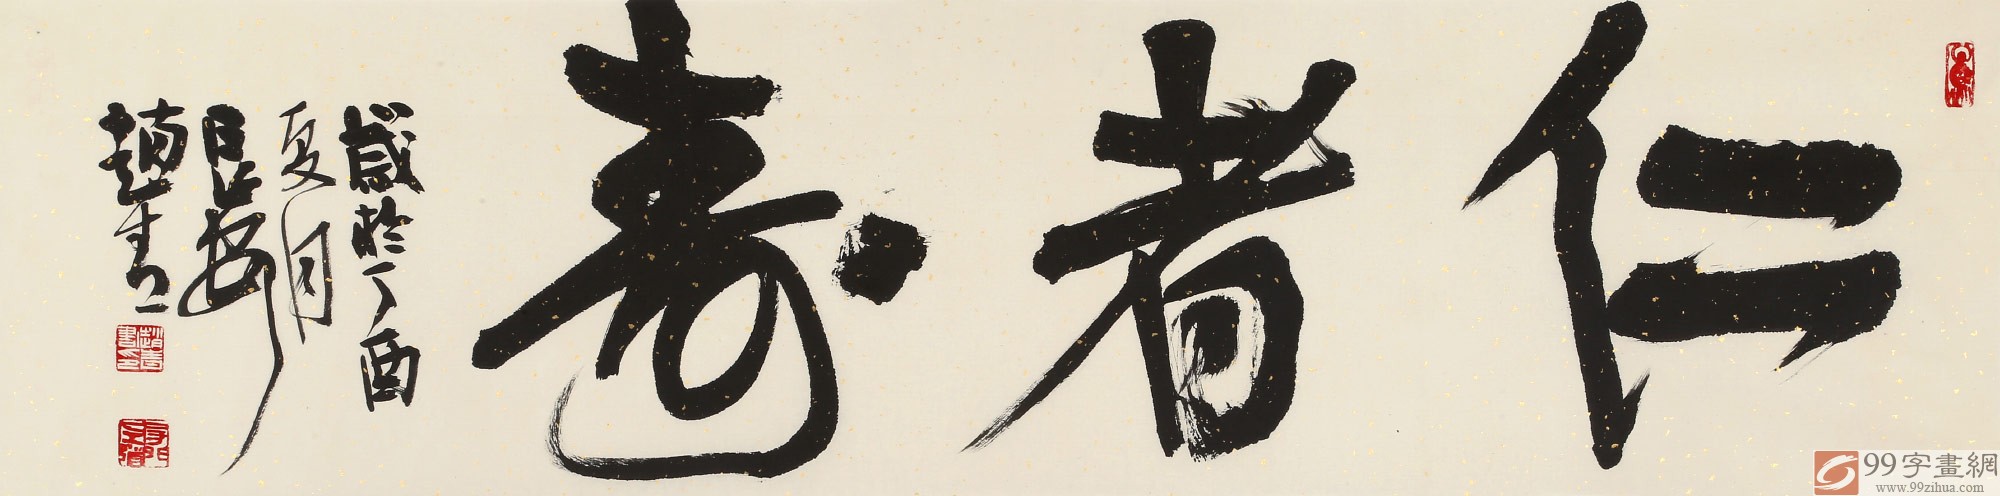 仁者壽
歲於丁酉
夏月
趙青
99字畫網
www.99zihua.com